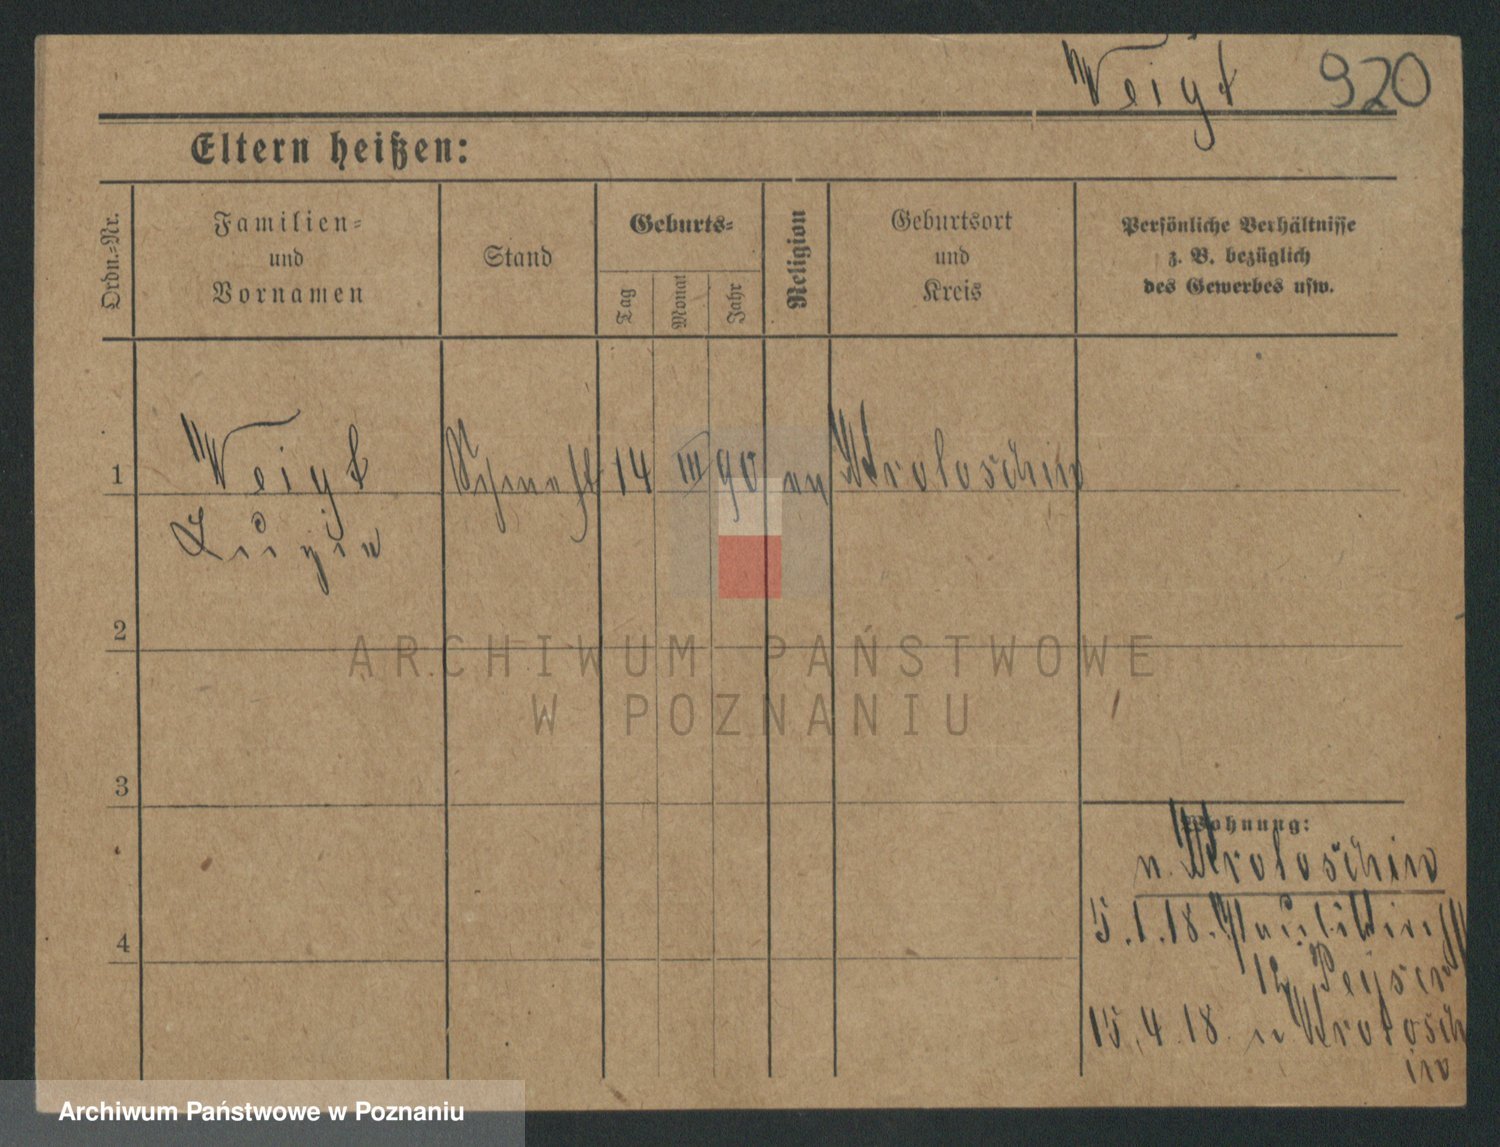 Veigt 920
Eltern heißen:
Ordn.-Nr.
Familien-
und
Vornamen
Stand
Geburts-
Tag
Monat
Jahr
Religion
Geburtsort
und
Kreis
Persönliche Verhältnisse
z. B. bezüglich
des Gewerbes usw.
1 Veigt 14 III 90 Krotoschin
2
ARCHIWUM PAŃSTWOWE
W POZNANIU
3
Wohnung:
n. Krotoschin
5.1.18.
12 Peyser
15.4.18. n Krotosch
in
4
Archiwum Państwowe w Poznaniu